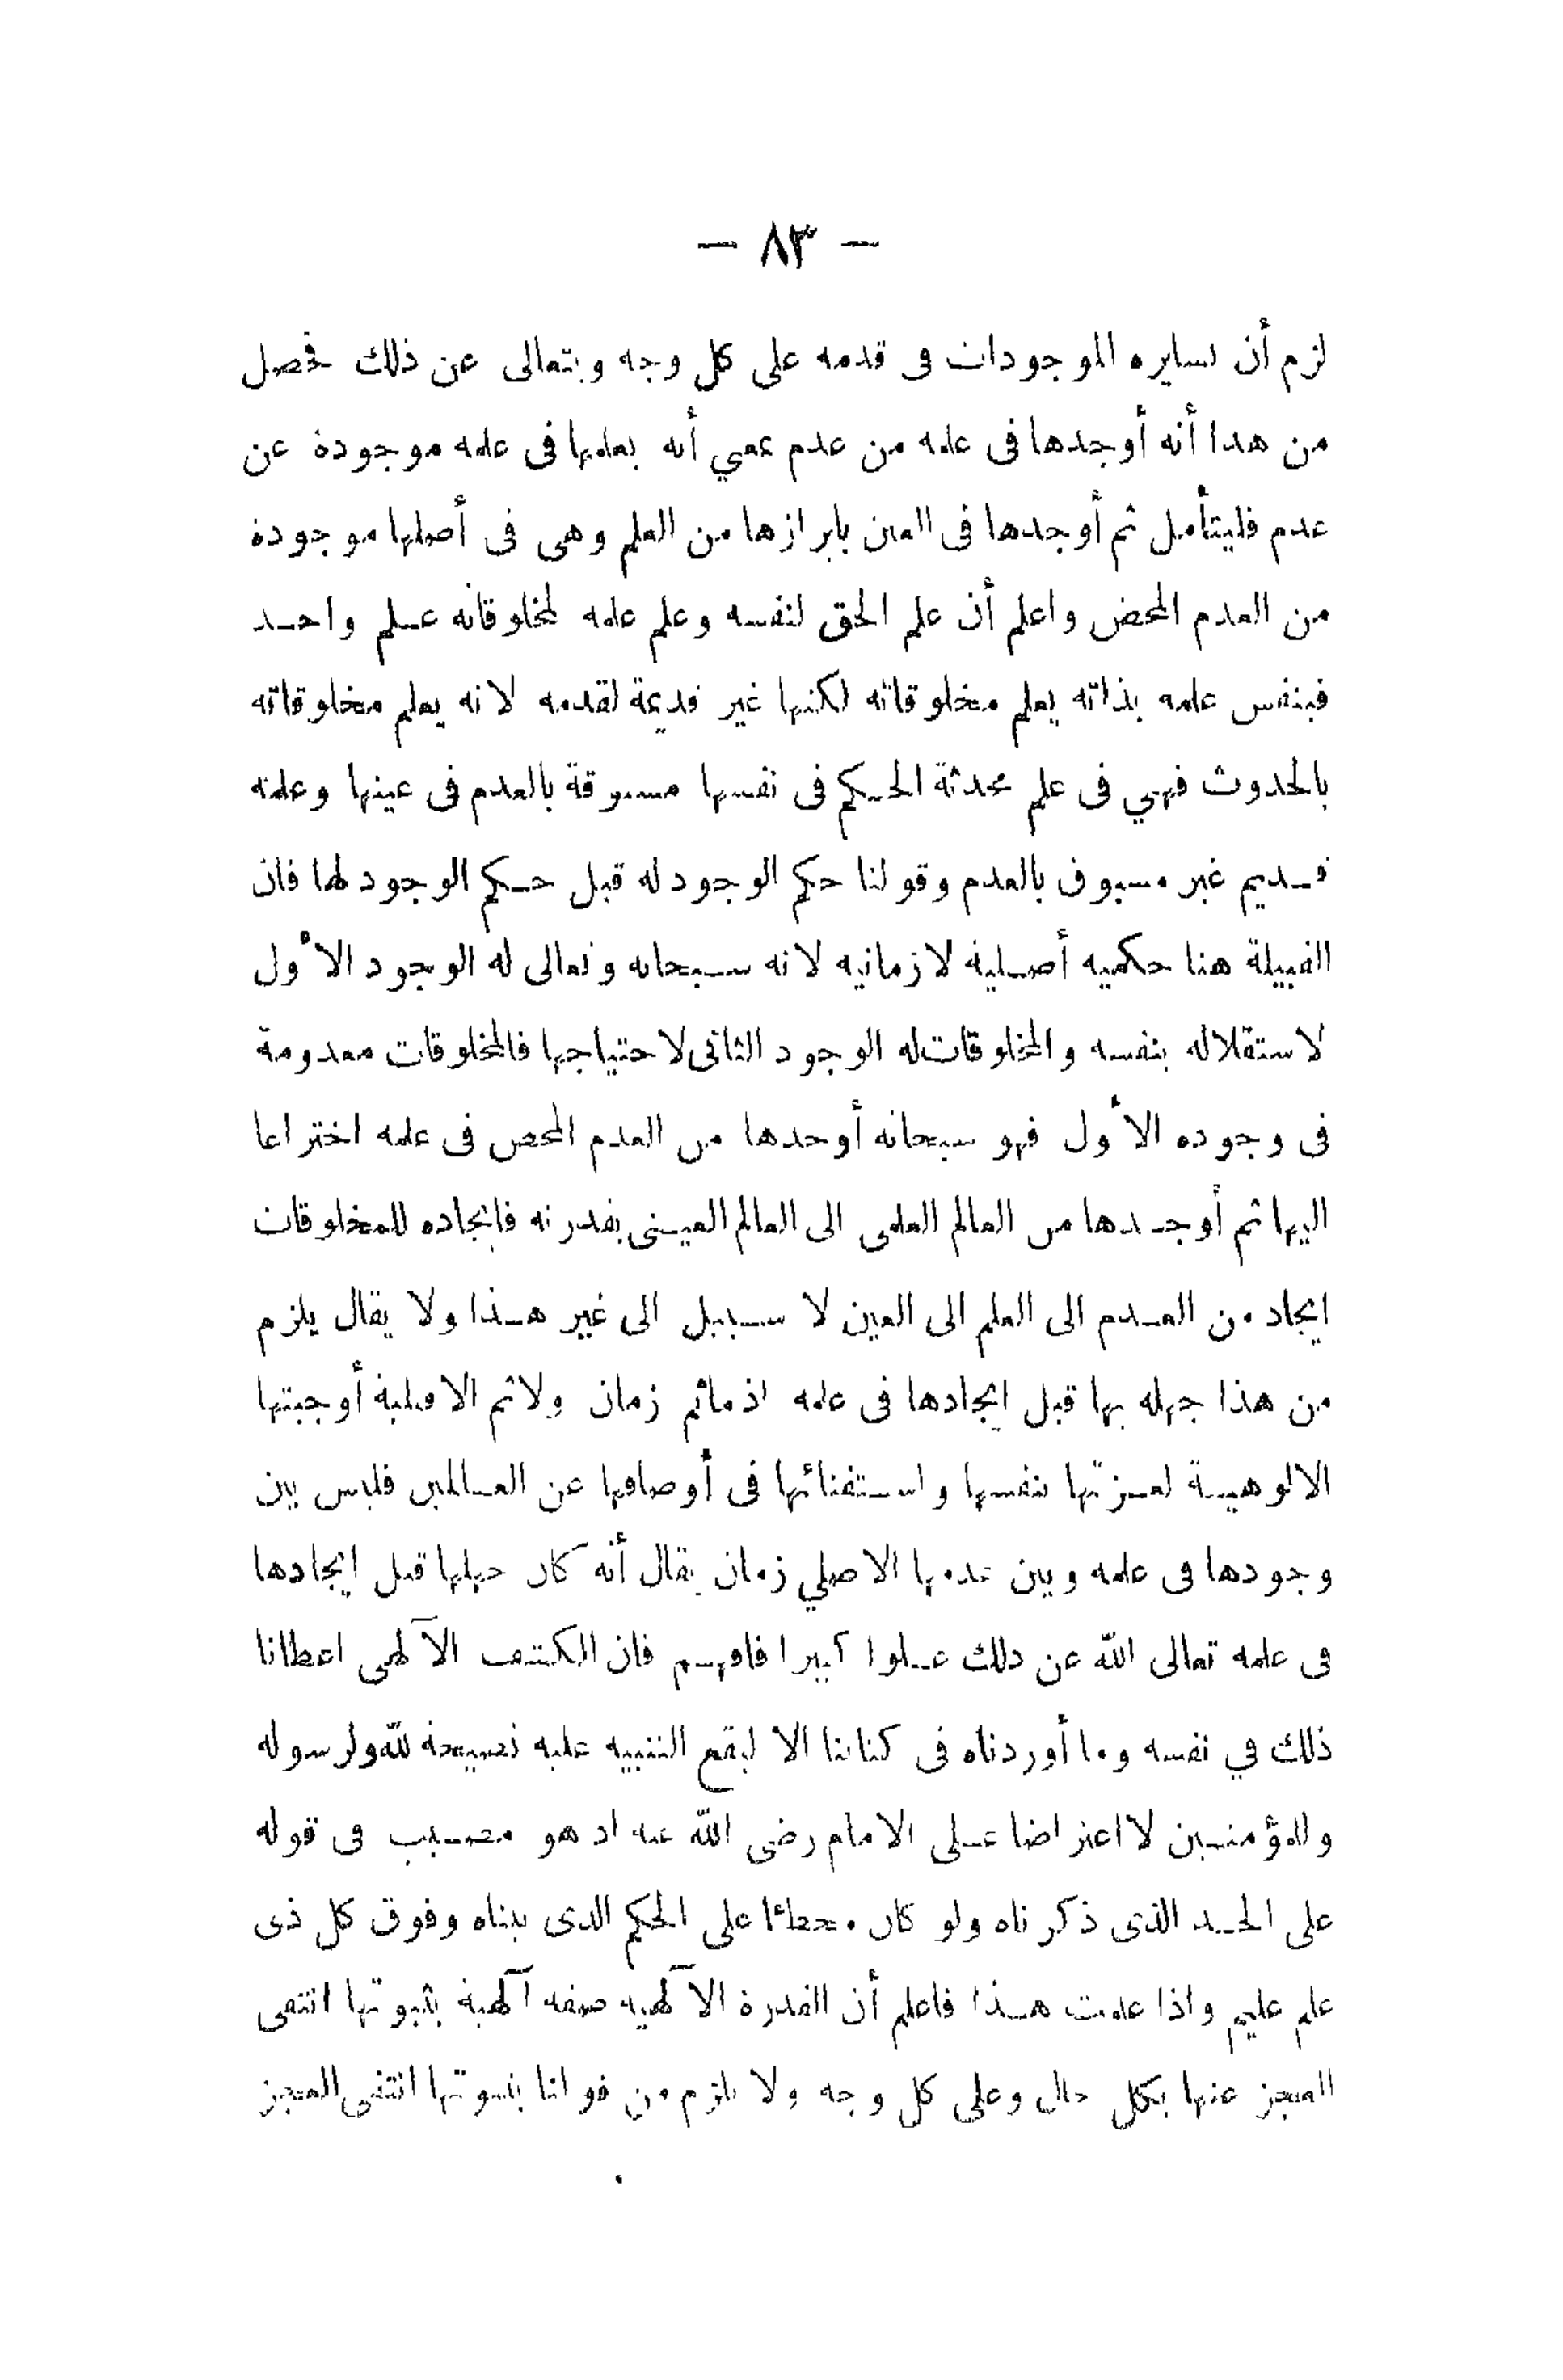 — ٨٣ —
لزم أن تسايره الموجودات فى قدمه على كل وجه ويتعالى عن ذلك فحصل
من هذا أنه أوجدها فى علمه من عدم بمعنى أنه يعلمها فى علمه موجودة عن
عدم فليتأمل ثم أوجدها فى العين بابرازها من العلم وهى فى أصلها موجودة
من العدم المحض واعلم أن علم الحق لنفسه وعلم علمه لمخلوقاته علم واحد
فبنفس علمه بذاته يعلم مخلوقاته لكنها غير قديمة لقدمه لانه يعلم مخلوقاته
بالحدوث فهي فى علم محدثة الحكم فى نفسها مسبوقة بالعدم فى عينها وعلمه
قديم غير مسبوق بالعدم وقولنا حكم الوجود له قبل حكم الوجود لها فان
القبيلة هنا حكميه أصلية لا زمانيه لانه سبحانه وتعالى له الوجود الأول
لاستقلاله بنفسه والمخلوقات له الوجود الثانى لاحتياجها فالمخلوقات معدومة
فى وجوده الأول فهو سبحانه أوجدها من العدم المحض فى علمه اختراعا
اليها ثم أوجدها من العالم العلمى الى العالم العينى بقدرته فايجاده للمخلوقات
ايجاد من العدم الى العلم الى العين لا سبيل الى غير هذا ولا يقال يلزم
من هذا جهله بها قبل ايجادها فى علمه اذ ماثم زمان ولاثم الا قبلية أوجبتها
الالوهية لعزتها بنفسها واستغنائها فى أوصافها عن العالمين فليس بين
وجودها فى علمه وبين عدمها الاصلي زمان يقال أنه كان جهلها قبل ايجادها
فى علمه تعالى الله عن ذلك علوا كبيرا فافهم فان الكشف الآلهى اعطانا
ذلك في نفسه وما أوردناه فى كتابنا الا ليقع التنبيه عليه نصيحة لله ولرسوله
وللمؤمنين لا اعتراضا على الامام رضى الله عنه اذ هو مصيب فى قوله
على الحد الذى ذكرناه ولو كان مخطئا على الحكم الذى بيناه وفوق كل ذى
علم عليم واذا علمت هذا فاعلم أن القدرة الآلهيه صفه آلهية بثبوتها انتفى
العجز عنها بكل حال وعلى كل وجه ولا يلزم من قولنا بثبوتها انتفى العجز